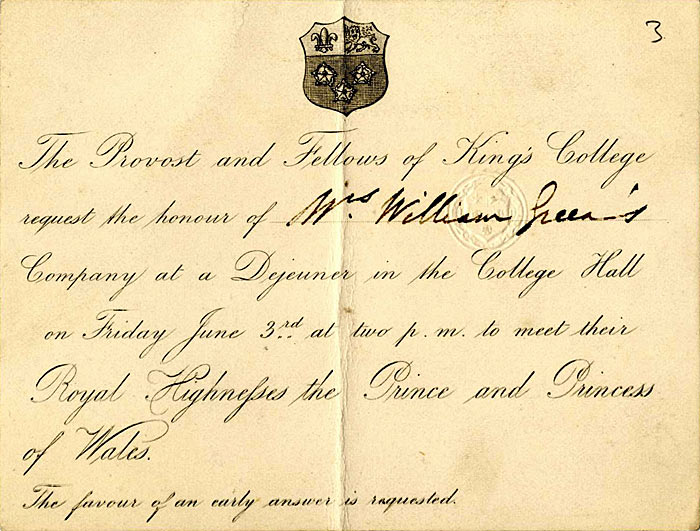 3
The Provost and Fellows of King's College
request the honour of Mrs William Green's
Company at a Dejeuner in the College Hall
on Friday June 3rd at two p.m. to meet their
Royal Highneſses the Prince and Princess
of Wales.
The favour of an early answer is requested.